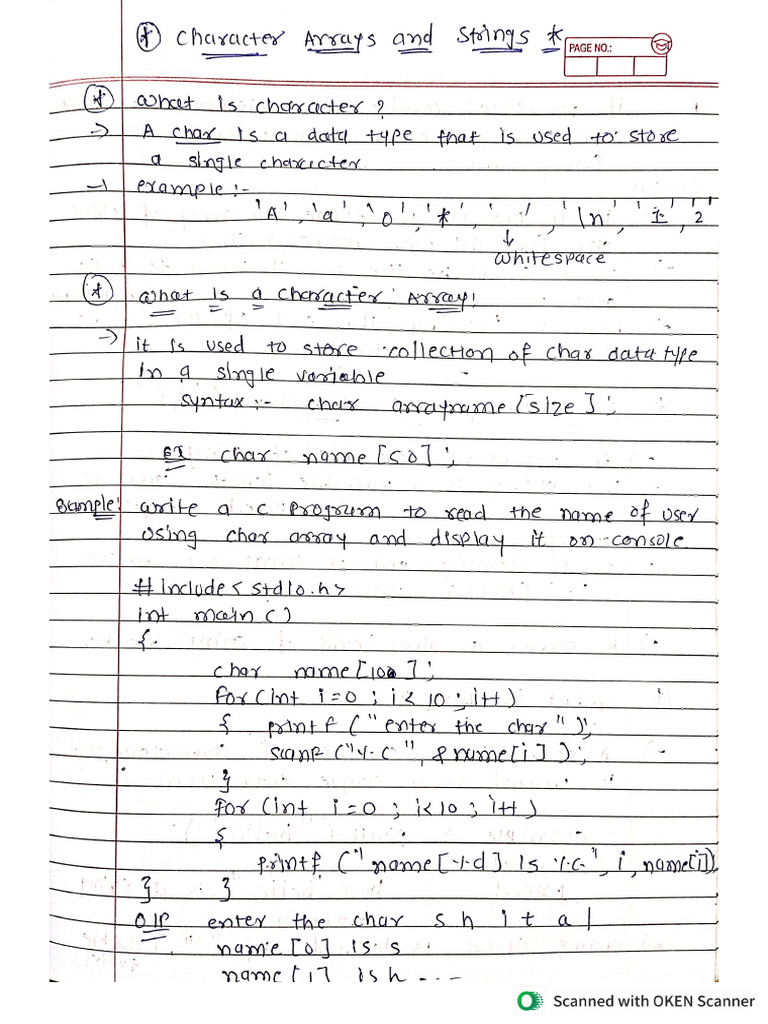 * Character Arrays and Strings *
PAGE NO.:
* What is character ?
→ A char is a data type that is used to store
a single character
→ example :-
'A', 'a', '0', '*', ' ', '\n', '1', '2'
↓
whitespace
* What is a Character Array!
→ it is used to store collection of char data type
in a single variable
syntax :- char arrayname [size] ;
ex char name [50] ;
Example: write a c program to read the name of user
using char array and display it on console
# include < stdio.h>
int main ()
{
char name [100] ;
for (int i=0 ; i< 10 ; i++)
{ printf ("enter the char");
scanf ("%c", &name[i]);
}
for (int i=0 ; i<10 ; i++)
{
printf ("name[%d] is %c", i, name[i]).
} }
O/P enter the char s h i t a l
name [0] is s
name [1] is h ....
Scanned with OKEN Scanner